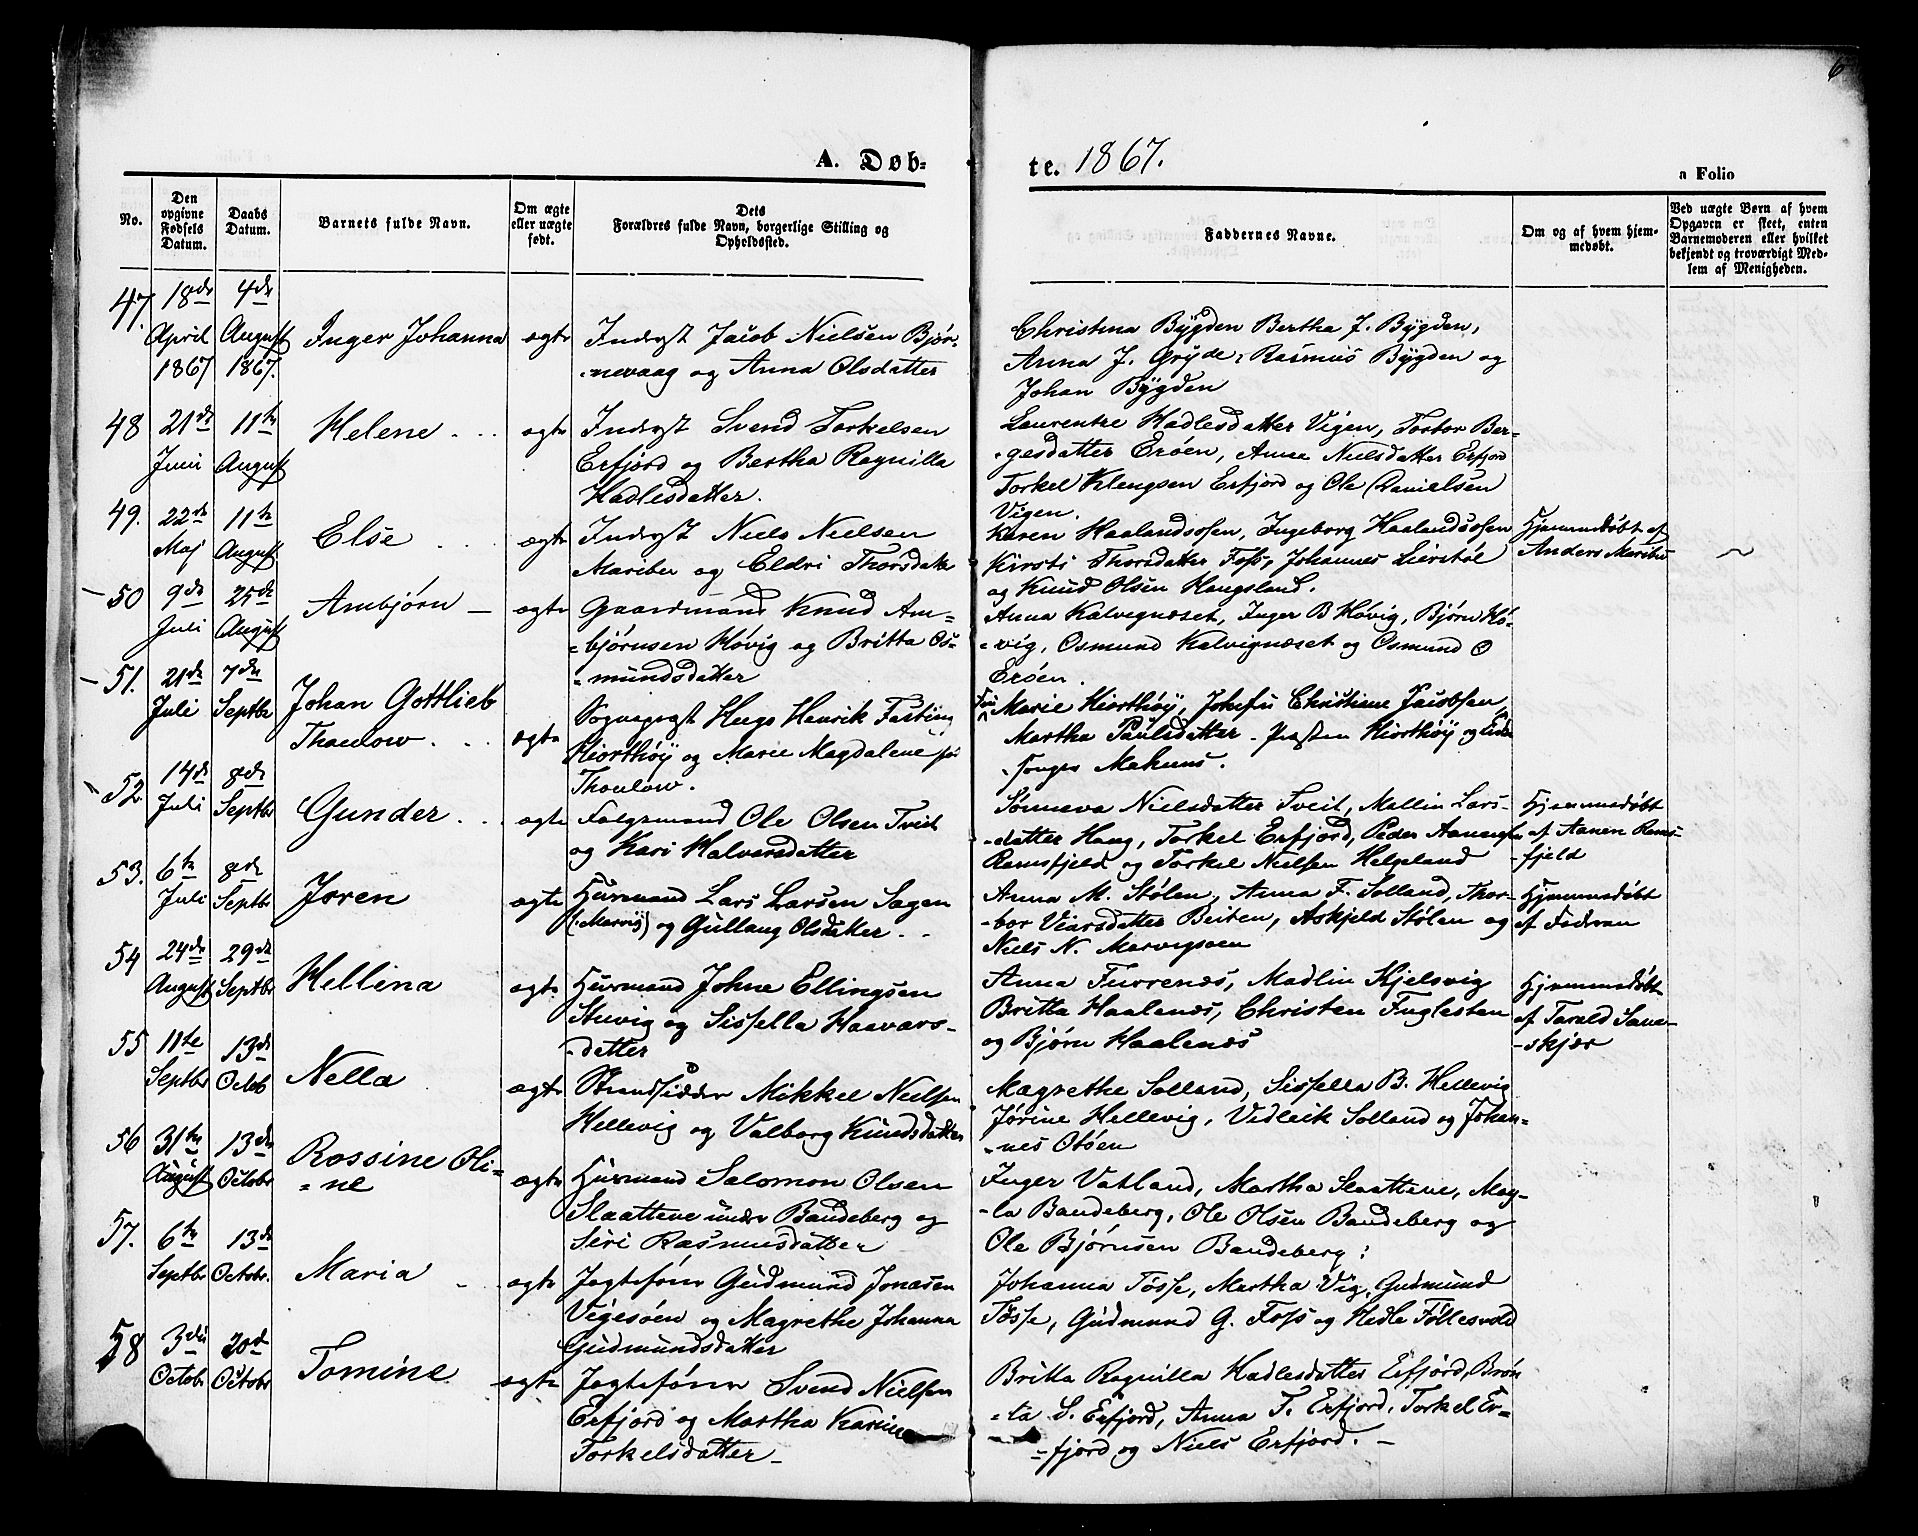 6
A. Døb-
te. 1867.
a Folio
No.
Den opgivne Fødsels Datum.
Daabs Datum.
Barnets fulde Navn.
Om ægte eller uægte født.
Dets Forældres fulde Navn, borgerlige Stilling og Opholdssted.
Faddernes Navne.
Om og af hvem hjemmedøbt.
Ved uægte Børn af hvem Opgaven er skeet, enten Barnemoderen eller hvilket bekjendt og troværdigt Medlem af Menigheden.
47. 18de April 1867
4de August 1867.
Inger Johanna
ægte
Inderst Jacob Nielsen Bjør-
nevaag og Anna Olsdatter
Christina Bygden Bertha J. Bygden,
Anna J. Gryde, Rasmus Bygden og
Johan Bygden
48 21de Juni
11te August
Helene
ægte
Inderst Svend Torkelsen
Erfjord og Bertha Ragnilla
Hadlesdatter.
Laurentze Hadlesdatter Vigen, Torbor Ber-
gesdatter Erøen, Anna Nielsdatter Erfjord
Torkel Klengsen Erfjord og Ole Danielsen
Vigen.
49. 22de Maj
11te August
Else
ægte
Inderst Niels Nielsen
Mariber og Eldri Thorsdatter
Karen Haalandsosen, Ingeborg Haalandsosen
Kirsti Thorsdatter Foss, Johannes Lierstøl
og Knud Olsen Haugsland.
Hjemmedøbt af
Anders Maribu
50 9de Juli
25de August
Ambjørn
ægte
Gaardmand Knud Am-
bjørnsen Høvig og Britta Os-
mundsdatter
Anna Kalvignæset, Inger B Høvig, Bjørn Hø-
vig, Osmund Kalvignæset og Osmund O
Erøen.
51. 21de Juli
7de Septbr
Johan Gottlieb
Thaulow
ægte
Sognepræst Hugo Henrik Fasting
Hiorthøy og Marie Magdalene f.
Thaulow.
Marie Hiorthøy, Josefa Christine Jacobsen,
Martha Paulsdatter. Præsten Hiorthøy og
52. 14de Juli
8de Septbr
Gunder
ægte
Folgemand Ole Olsen Tveit
og Kari Halvorsdatter
Sønneva Nielsdatter Tveit, Mallin Lars-
datter Haug, Torkel Erfjord, Peder Aanensen
Ramsfjeld og Torkel Nielsen Helgeland
Hjemmedøbt
af Aanen Rams-
fjeld
53. 6te Juli
8de Septbr
Joren
ægte
Husmand Lars Larsen Sagen
(Marvig) og Gullaug Olsdatter
Anna M. Stølen, Anna F. Solland, Thor-
bor Viarsdatter Beiten, Askjeld Stølen og
Niels N. Marvigsoen
Hjemmedøbt
af Faderen
54 24de August
29de Septbr
Hellina
ægte
Husmand Johne Ellingsen
Stuvig og Sissella Haavars-
datter
Anna Furrenæs, Madlin Kjelsvig
Britta Haalenæs, Christen Fuglesten
og Bjørn Haalenæs
Hjemmedøbt
af Tarald Sand-
skjær
55 11te Septbr
13de Octob
Nella
ægte
Strandsidder Mikkel Nielsen
Hellevig og Valborg Knudsdatter
Magrethe Solland, Sissella B. Hellevig
Jørine Hellevig, Vidleik Solland og Johan-
nes Otøen
56 31te August
13de Octobr
Rossine Oli-
ne
ægte
Husmand Salomon Olsen
Slaattene under Bandeberg og
Siri Rasmusdatter
Inger Vatland, Martha Slaattene, Mag-
la Bandeberg, Ole Olsen Bandeberg og
Ole Bjørnsen Bandeberg.
57. 6te Septbr
13de Octobr.
Maria
ægte
Jagtefører Gudmund Jonasen
Vigesøen og Magrethe Johanna
Gudmundsdatter
Johanna Tøsse, Martha Vig, Gudmund
Tøsse, Gudmund G. Foss og Hedle Føllesvold
58 3die Octobr
20de Octobr
Tomine
ægte
Jagtefører Svend Nielsen
Erfjord og Martha Karine
Torkelsdatter
Britta Ragnilla Hadlesdatter Erfjord, Brøn-
ta S. Erfjord, Anna T. Erfjord, Torkel Er-
fjord og Niels Erfjord.